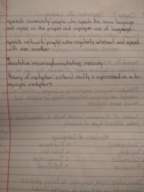 speech community: people who speak the same language
and agree on the proper and improper use of language
speech network: people who regularly interact and speak
with one another
denotative meaning/connotative meaning
theory of metaphor: cultural reality is expressed in a la-
metaphors